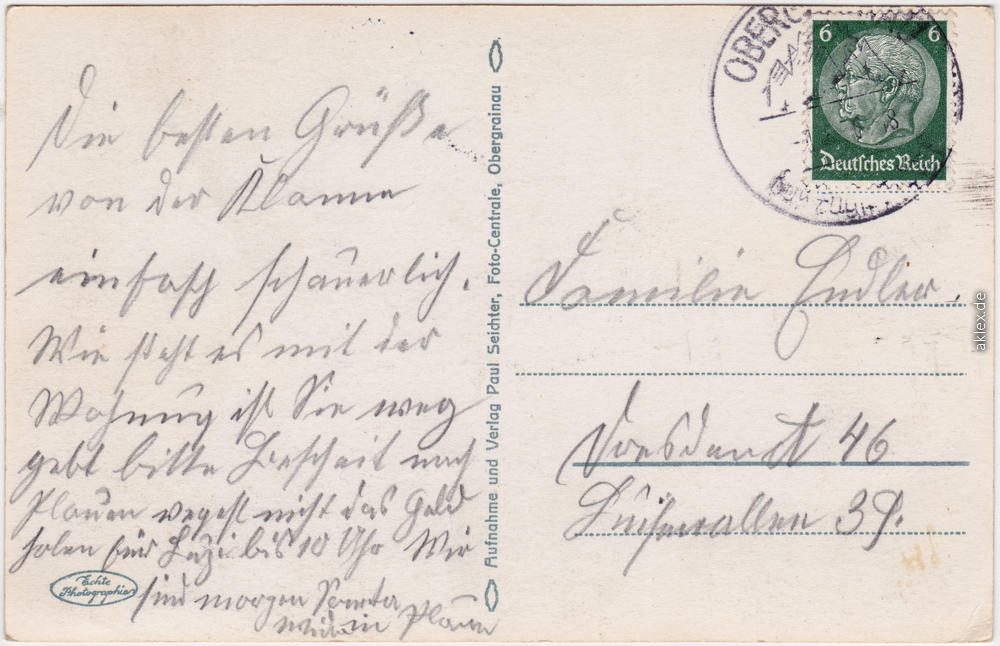 Die besten Grüße
von der Klamm
einfach schauerlich.
Wie steht es mit der
Wohnung ist Sie weg
gebt bitte Bescheit nach
Plauen vegest nicht das Geld
holen für bis 10 Uhr Wir
sind morgen
in Plauen
Echte
Photographie
Aufnahme und Verlag Paul Seichter, Foto-Centrale, Obergrainau
6 6
Deutsches Reich
Familie Endler.
Dresden A 46
39.
aklex.de